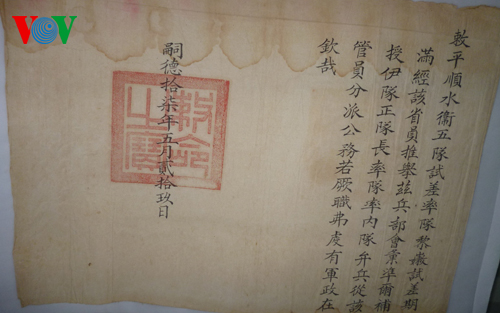 VOV
敕平順水衛五隊試差率隊黎試差期
滿經該省員推舉茲兵部會秉準爾補
授伊隊正隊長率隊率內隊弁兵從該
管員分派公務若厥職弗虔有軍政在
欽哉
嗣德拾柒年五月貳拾玖日
敕命之寶